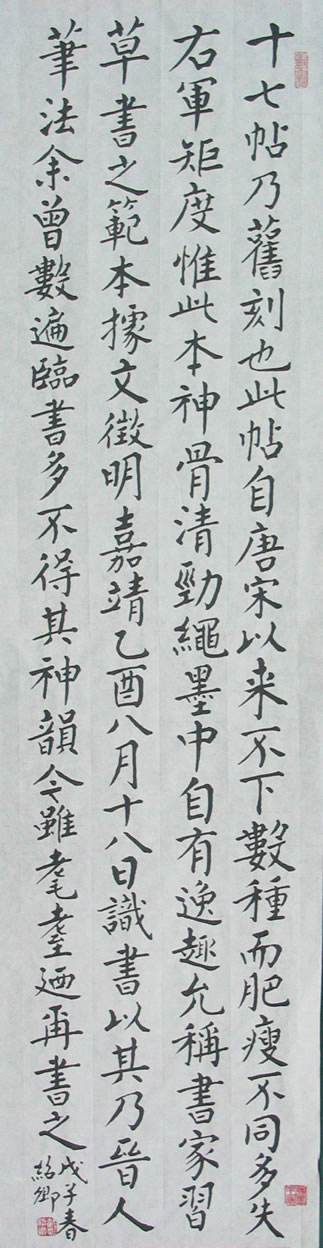 十七帖乃舊刻也此帖自唐宋以来不下數種而肥瘦不同多失
右軍矩度惟此本神骨清勁繩墨中自有逸趣允稱書家習
草書之範本據文徵明嘉靖乙酉八月十八日識書以其乃晉人
筆法余曾數遍臨書多不得其神韻今雖耄耋廼再書之
戊子春
紹卿